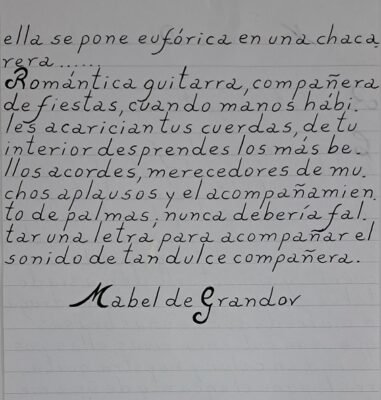 ella se pone eufórica en una chaca.
rera......
Romántica guitarra, compañera
de fiestas, cuando manos hábi.
les acarician tus cuerdas, de tu
interior desprendes los más be.
llos acordes, merecedores de mu.
chos aplausos y el acompañamien.
to de palmas; nunca debería fal.
tar una letra para acompañar el
sonido de tan dulce compañera.
Mabel de Grandov